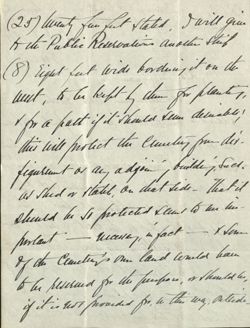 (25) twenty five feet stated, I will give
to the Public Reservation another strip
(8) Eight feet wide bordering it on the
west, to be kept by them for planting
& for a path if it should seem desirable:
this will protect the Cemetery from dis-
figurement as any adjoining building, such
as shed or stable on that side. That it
should be so protected seems to me im-
portant — necessary in fact — & some
of the Cemetery's own land would have
to be reserved for the purpose, or should be,
if it is not provided for in this way, outside